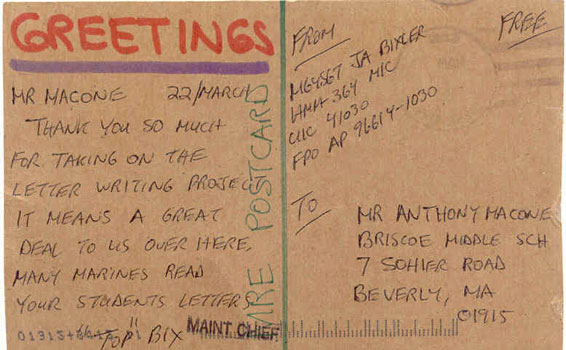 GREETINGS
MR MACONE 22/MARCH
THANK YOU SO MUCH
FOR TAKING ON THE
LETTER WRITING PROJECT
IT MEANS A GREAT
DEAL TO US OVER HERE.
MANY MARINES READ
YOUR STUDENTS LETTERS
"TOP" BIX
MAINT CHIEF
MRE POSTCARD
FROM
FREE
MGYSGT JA BIXLER
HMM-364 MIC
UIC 41030
FPO AP 96614-1030
TO
MR ANTHONY MACONE
BRISCOE MIDDLE SCH
7 SOHIER ROAD
BEVERLY, MA
01915